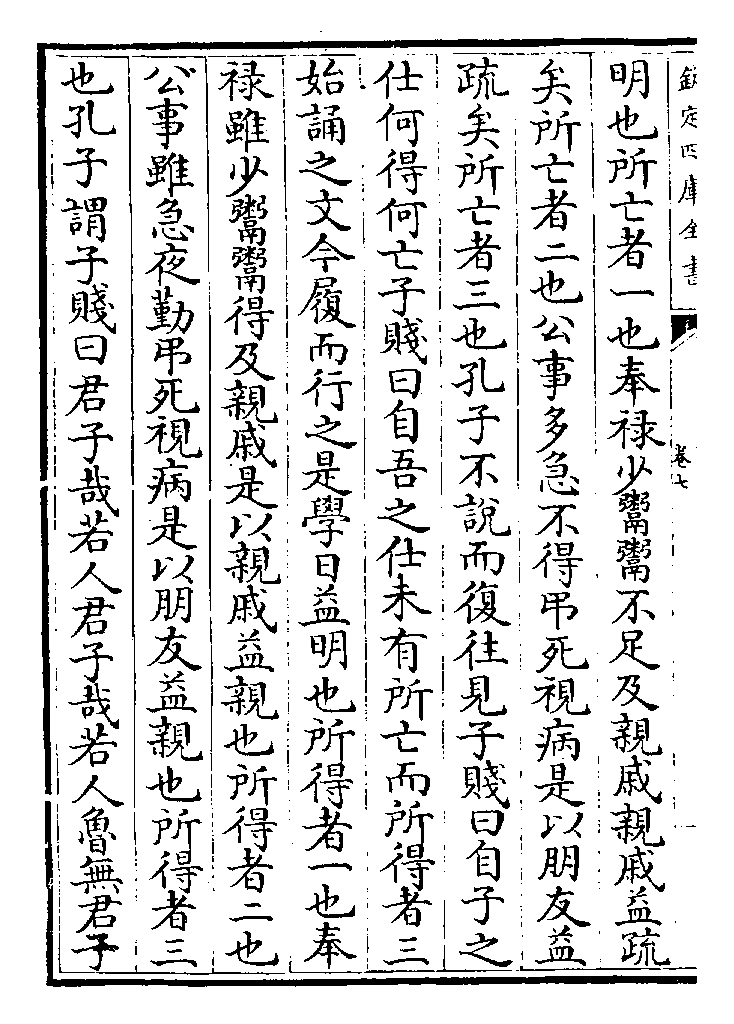 欽定四庫全書
卷七
明也所亡者一也奉禄少鬻鬻不足及親戚親戚益疏
矣所亡者二也公事多急不得弔死視病是以朋友益
疏矣所亡者三也孔子不說而復往見子賤曰自子之
仕何得何亡子賤曰自吾之仕未有所亡而所得者三
始誦之文今履而行之是學日益明也所得者一也奉
禄雖少鬻鬻得及親戚是以親戚益親也所得者二也
公事雖急夜勤弔死視病是以朋友益親也所得者三
也孔子謂子賤曰君子哉若人君子哉若人魯無君子